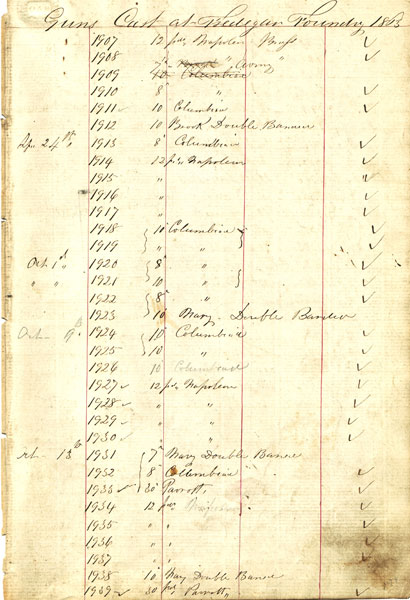 Guns Cast at Tredegar Foundry 1863
1907 12 pdr Napoleon Brass ✓
1908 7" " Army "
1909 40 Columbiad
1910 8 " ✓
1911 10 Columbiad ✓
1912 10 Brook Double Banded
24th 1913 8 Columbiad ✓
1914 12 pdr Napoleon ✓
1915 " " ✓
1916 " " ✓
1917 " " ✓
1918 10 Columbiad ✓
1919 " " ✓
Oct 1st 1920 8 " ✓
" " 1921 10 " ✓
1922 8" " ✓
1923 10 Navy Double Banded
Oct 9th 1924 10 Columbiad ✓
1925 10 " ✓
1926 10 Columbiad ✓
1927 ✓ 12 pdr Napoleon ✓
1928 ✓ " " ✓
1929 ✓ " " ✓
1930 ✓ " " ✓
13th 1931 7" Navy Double Banded
1932 8" Columbiad ✓
1933 ✓ 30 Parrott, ✓
1934 12 pdr Napoleon ✓
1935 " " ✓
1936 " " ✓
1937 " " ✓
1938 10 Navy Double Banded
1939 ✓ 30 pdr Parrott, ✓